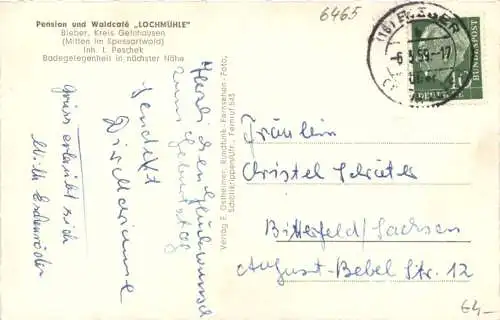 Pension und Waldcafé „LOCHMÜHLE"
Bieber, Kreis Gelnhausen
(Mitten im Spessartwald)
Inh. I. Peschek
Badegelegenheit in nächster Nähe
6465
(16) BIEBER
-6.3.59-17
10
DEUTSCHE
BUNDESPOST
Herzlichen Glückwunsch
zum Geburtstag
sendet
Dir Marianne
Verlag E. Ostheimer, Rundfunk-Fernsehen-Foto,
Schöllkrippen/Ufr., Fernruf 545
Fräulein
Christel Schröter
Bitterfeld/Sachsen
August-Bebel Str. 12
€4-